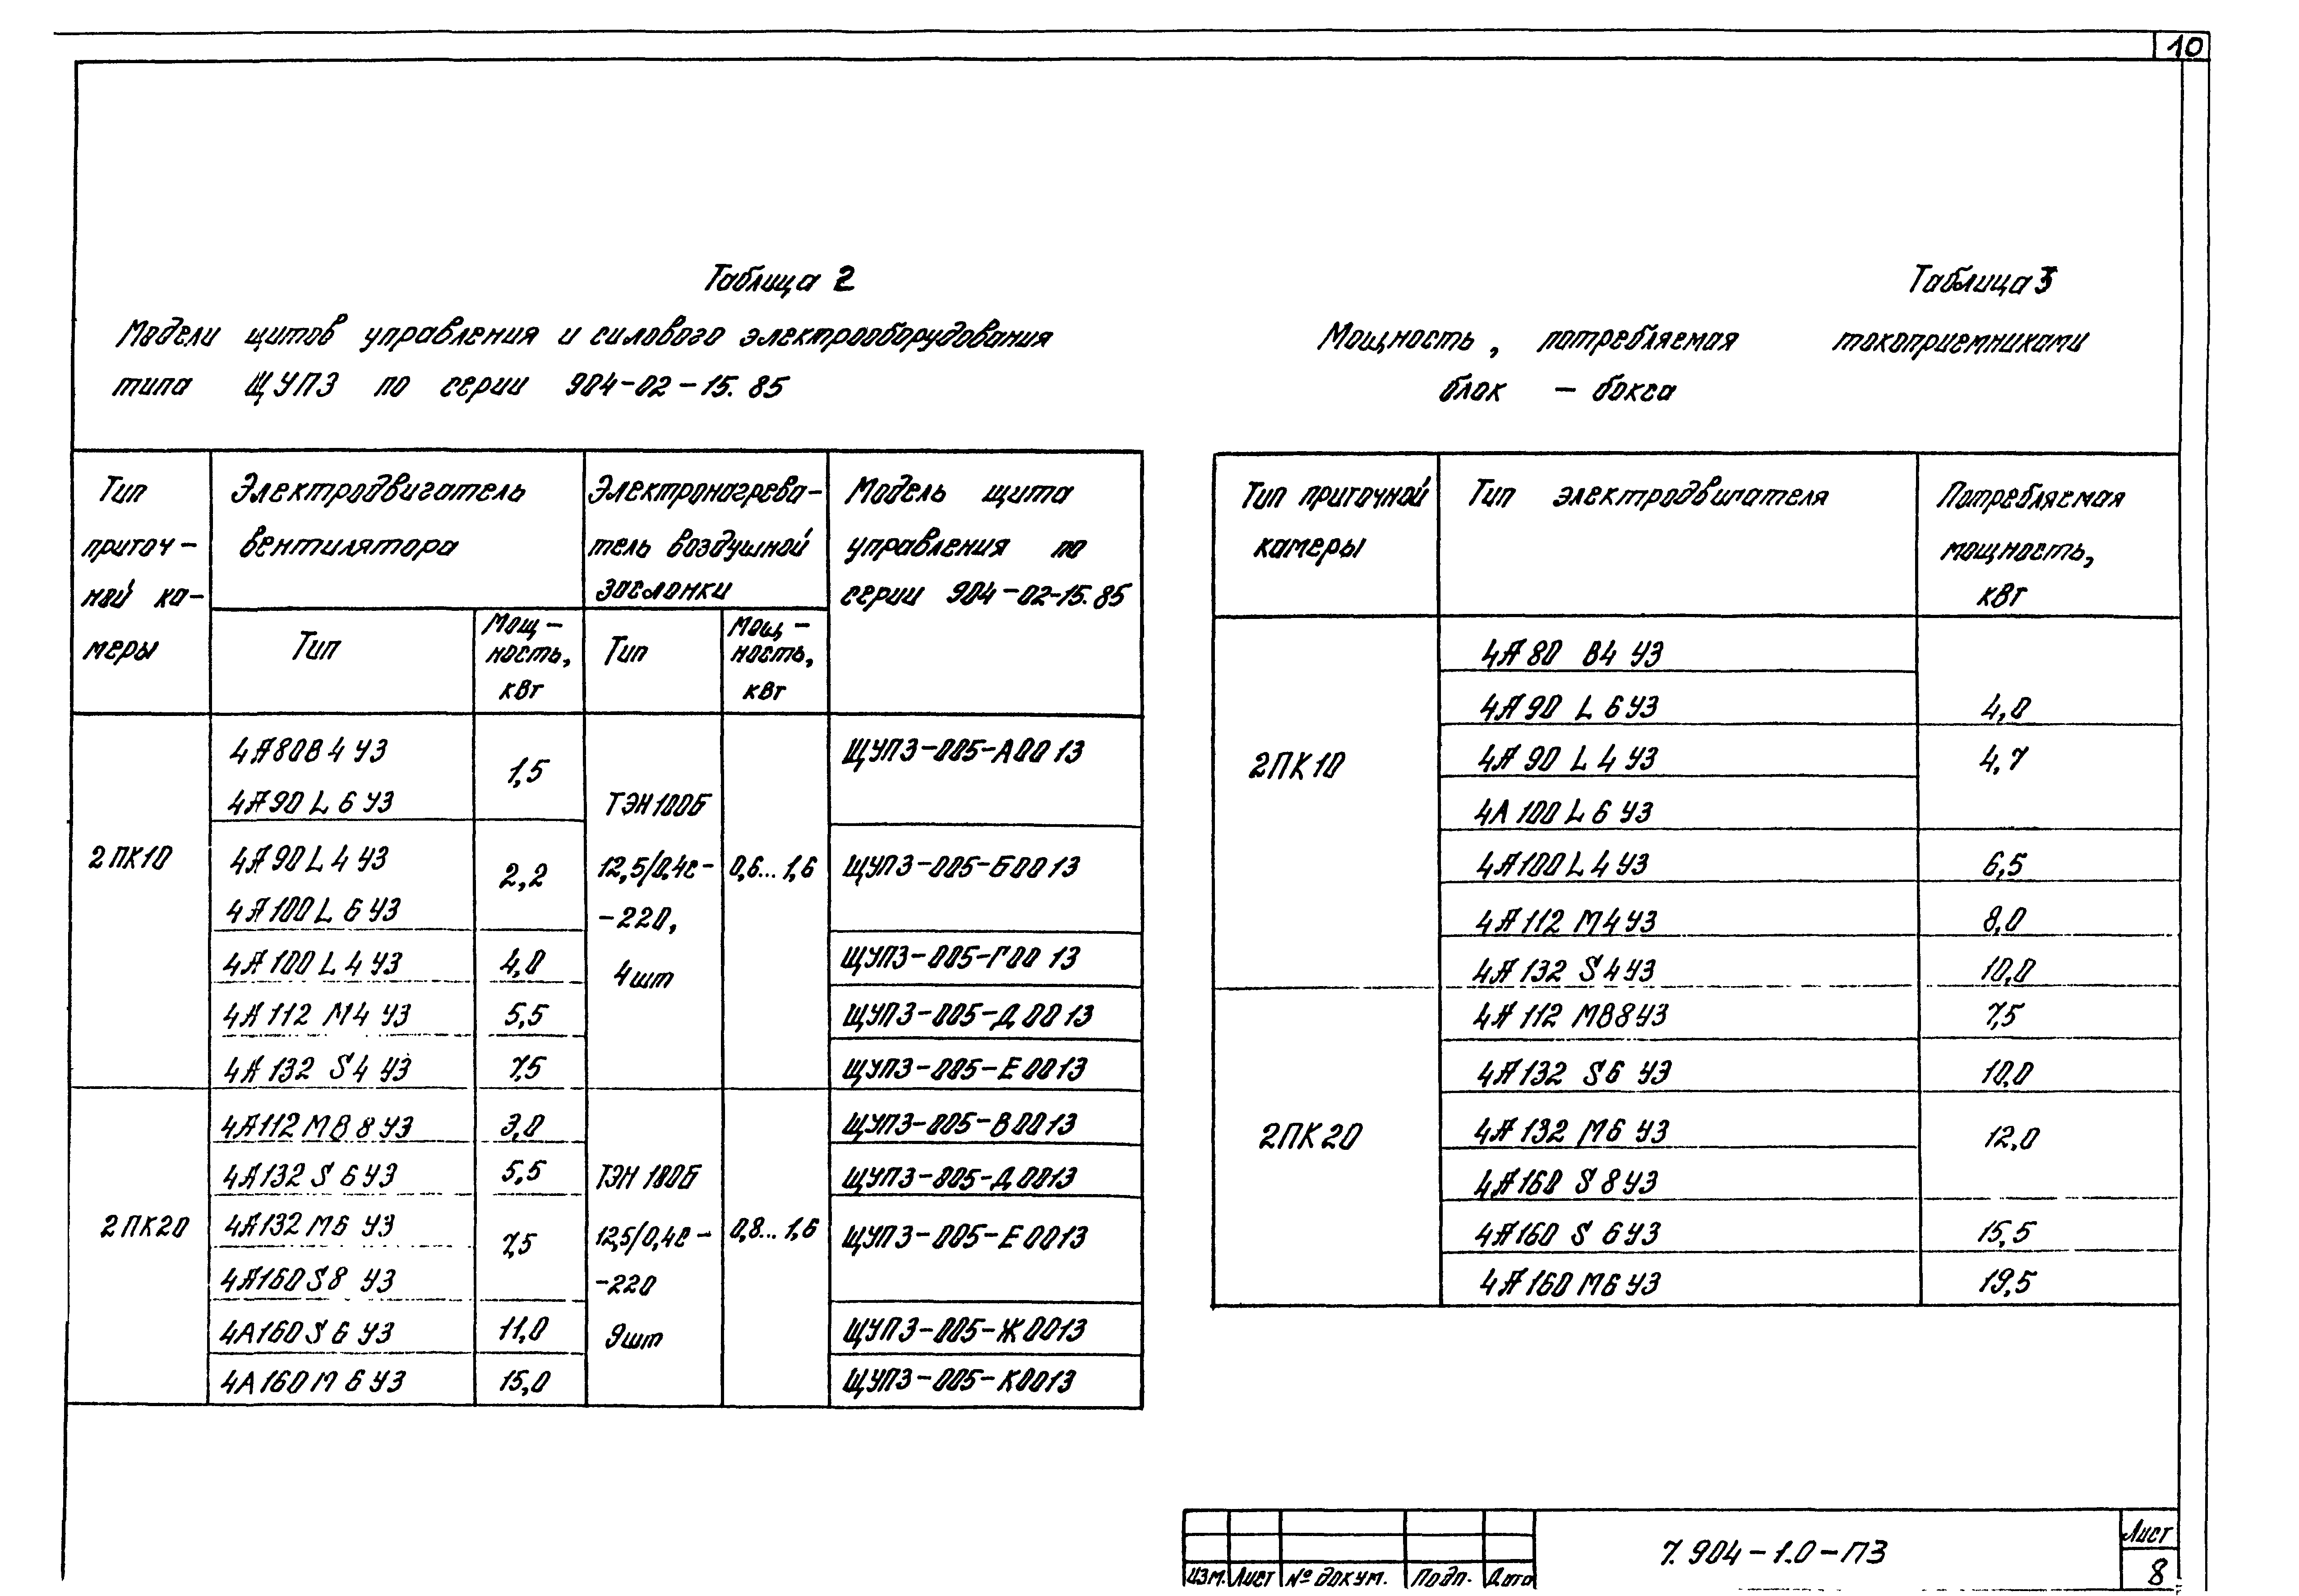 10
Таблица 2
Модели щитов управления и силового электрооборудования
типа ЩУПЗ по серии 904-02-15.85
Тип приточ- ной ка- меры
Электродвигатель вентилятора
Электронагрева- тель воздушной заслонки
Модель щита управления по серии 904-02-15.85
Тип
Мощ- ность, кВт
Тип
Мощ- ность, кВт
2ПК10
4А80В4У3
4А90L6У3
1,5
ТЭН100Б
12,5/0,4С-
-220,
4шт
0,6...1,6
ЩУПЗ-005-А0013
4А90L4У3
4А100L6У3
2,2
ЩУПЗ-005-Б0013
4А100L4У3 4,0 ЩУПЗ-005-Г0013
4А112М4У3 5,5 ЩУПЗ-005-Д0013
4А132S4У3 7,5 ЩУПЗ-005-Е0013
2ПК20
4А112МВ8У3 3,0 ЩУПЗ-005-В0013
4А132S6У3 5,5 ЩУПЗ-005-Д0013
ТЭН180Б
12,5/0,4С-
-220
9шт
0,8...1,6
4А132М6У3
4А160S8У3
7,5
ЩУПЗ-005-Е0013
4А160S6У3 11,0 ЩУПЗ-005-Ж0013
4А160М6У3 15,0 ЩУПЗ-005-К0013
Таблица 3
Мощность, потребляемая токоприемниками
блок - бокса
Тип приточной камеры
Тип электродвигателя
Потребляемая мощность, кВт
2ПК10
4А80 В4У3
4А90 L6У3 4,0
4А90 L4У3 4,7
4А100L6У3
4А100L4У3 6,5
4А112 М4У3 8,0
4А132 S4У3 10,0
2ПК20
4А112 МВ8У3 7,5
4А132 S6 У3 10,0
4А132 М6 У3 12,0
4А160 S8У3
4А160 S 6У3 15,5
4А160М6У3 19,5
Изм. Лист № докум. Подп. Дата
7.904-1.0-ПЗ
Лист
8